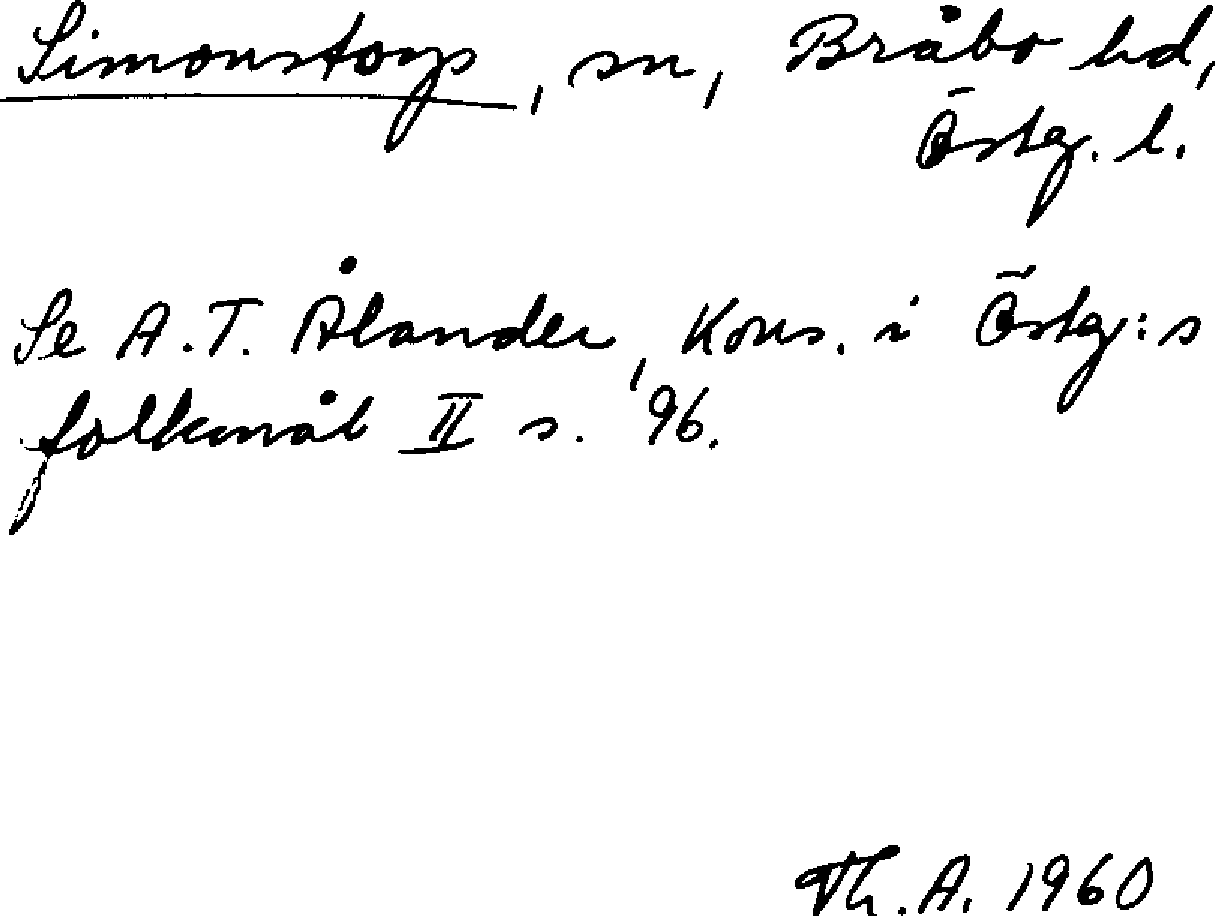 Simonstorp, sn, Bråbo hd,
Östg. l.
Se A.T. Ålander, Kons. i Östg:s
folkmål II s. 96.
Th. A. 1960